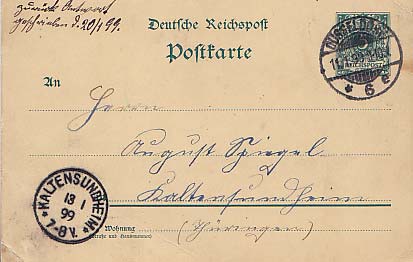 zurück Antwort
geschrieben d. 20/1 99.
Deutsche Reichspost
Postkarte
An
Herrn
August Spiegel
Kaltensundheim
Wohnung
(Straße und Hausnummer)
(Thüringen)
DÜSSELDORF
REICHSPOST
* 6 e
KALTENSUNDHEIM
13 1
99
7-8 V.